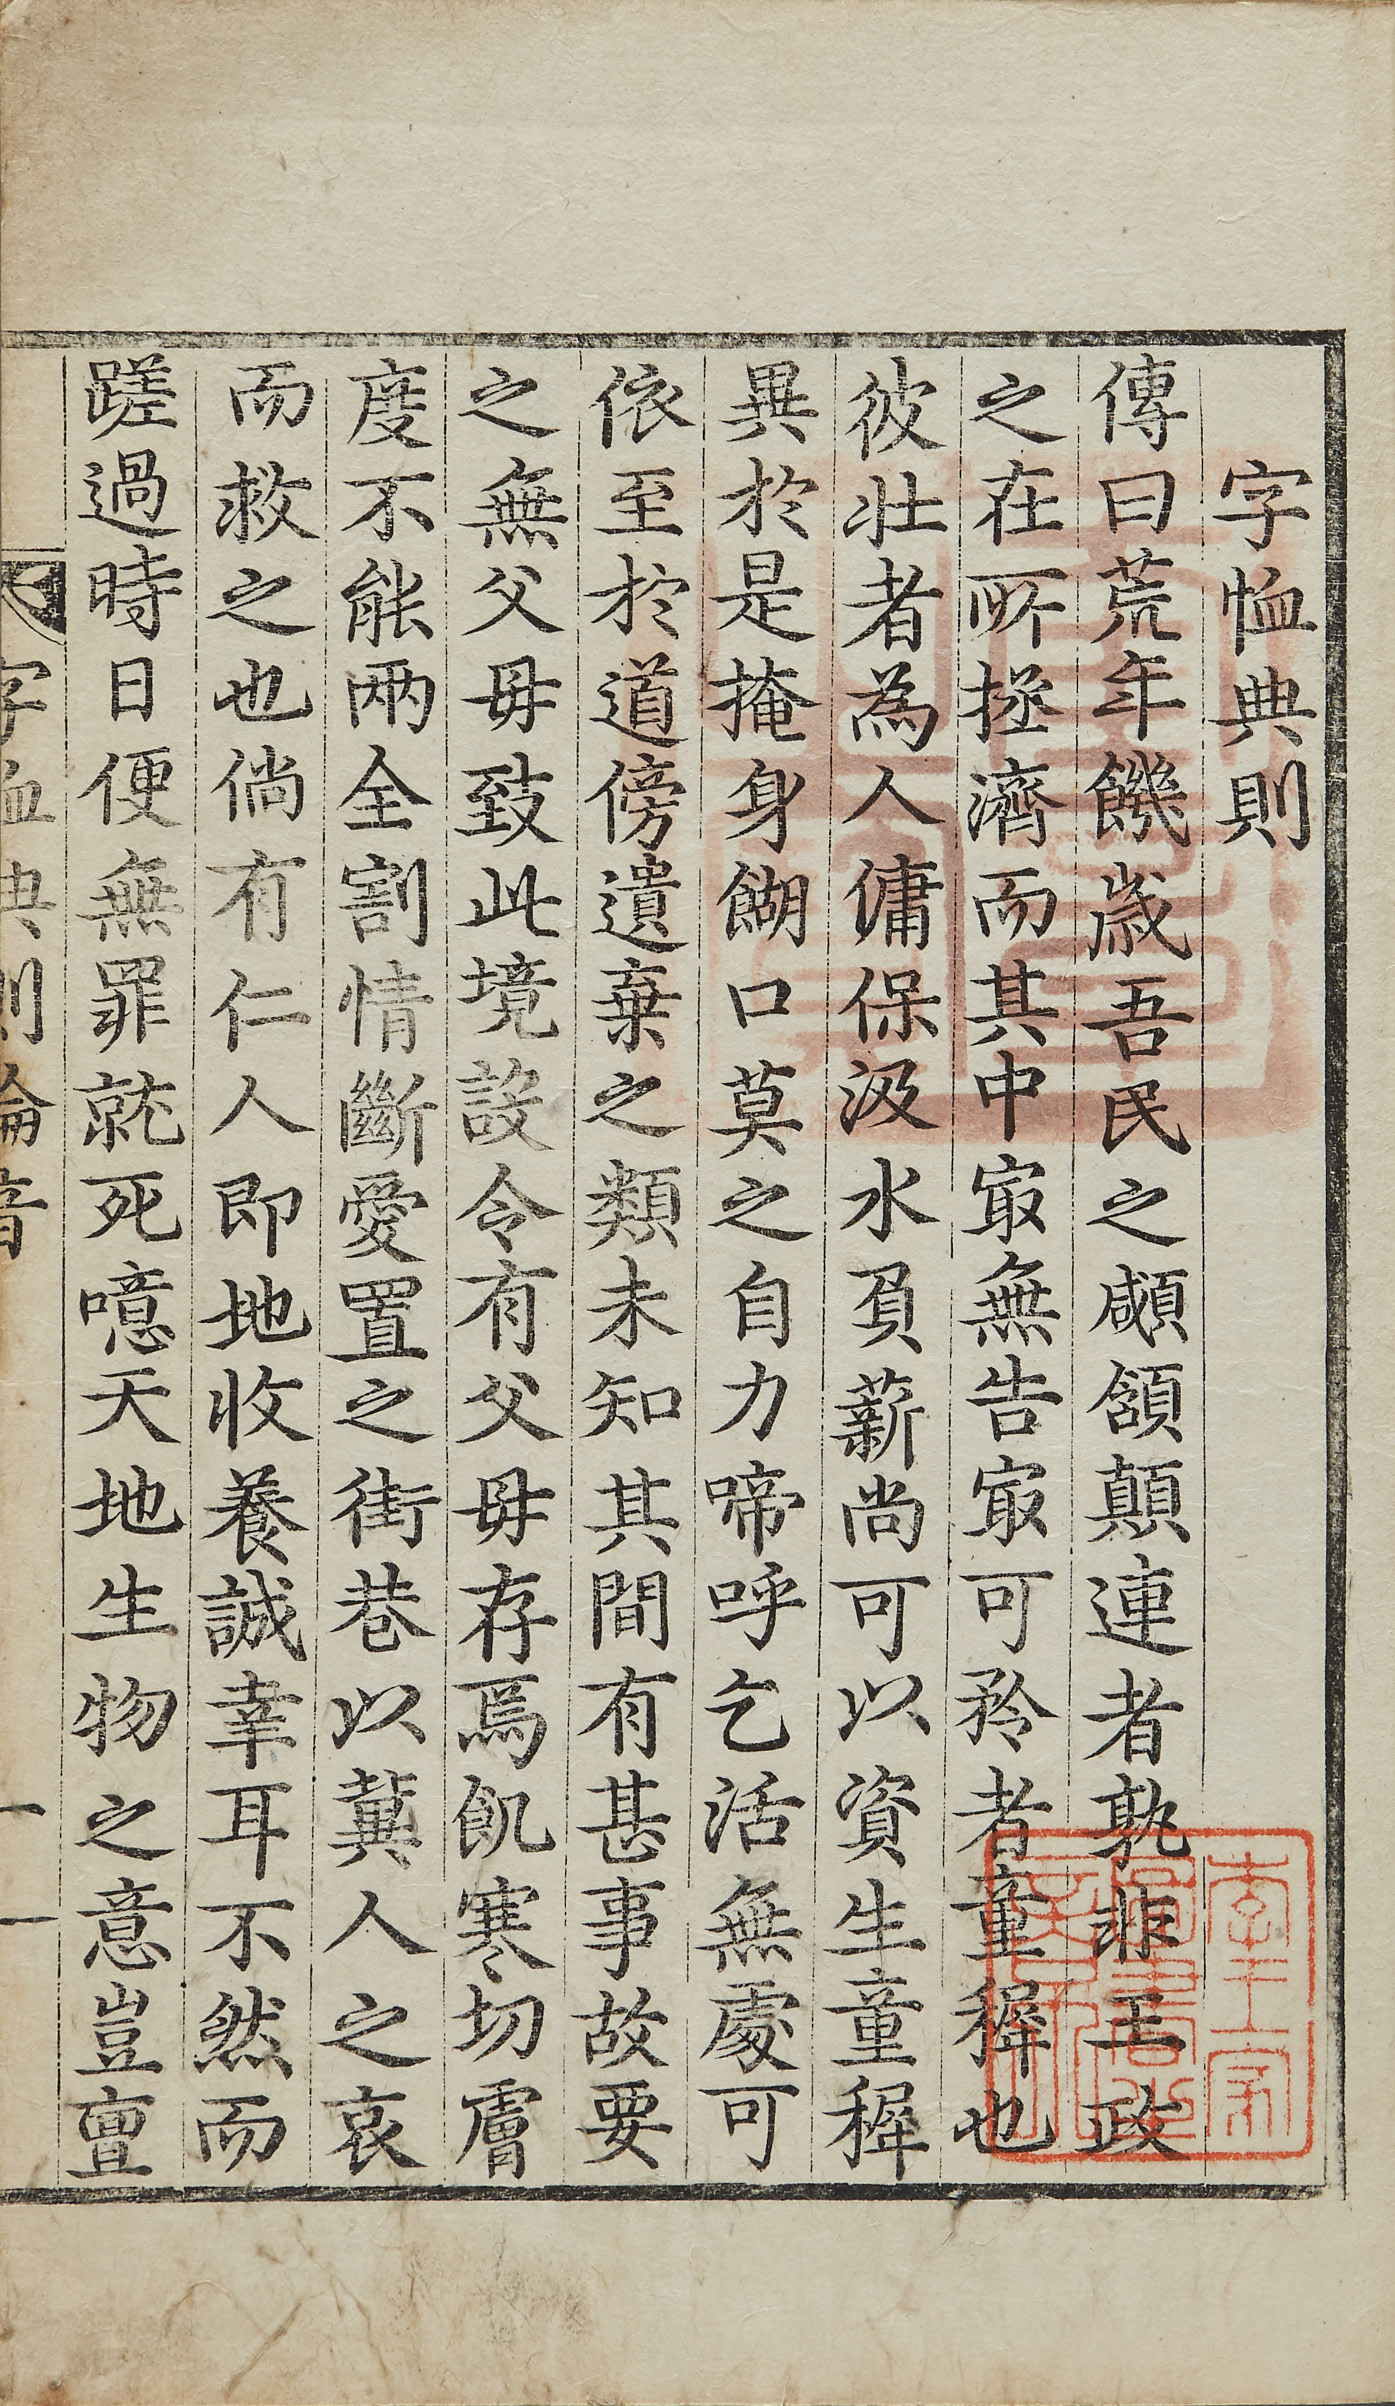 字恤典則
傳曰荒年饑歲吾民之顑頷顛連者孰非王政
之在所拯濟而其中㝡無告㝡可矜者童穉也
彼壯者為人傭保汲水負薪尚可以資生童穉
異於是掩身餬口莫之自力啼呼乞活無處可
依至於道傍遺棄之類未知其間有甚事故要
之無父母致此境設令有父母存焉飢寒切膚
度不能兩全割情斷愛置之街巷以冀人之哀
而救之也倘有仁人即地收養誠幸耳不然而
蹉過時日便無罪就死噫天地生物之意豈亶
字恤典則綸音
一